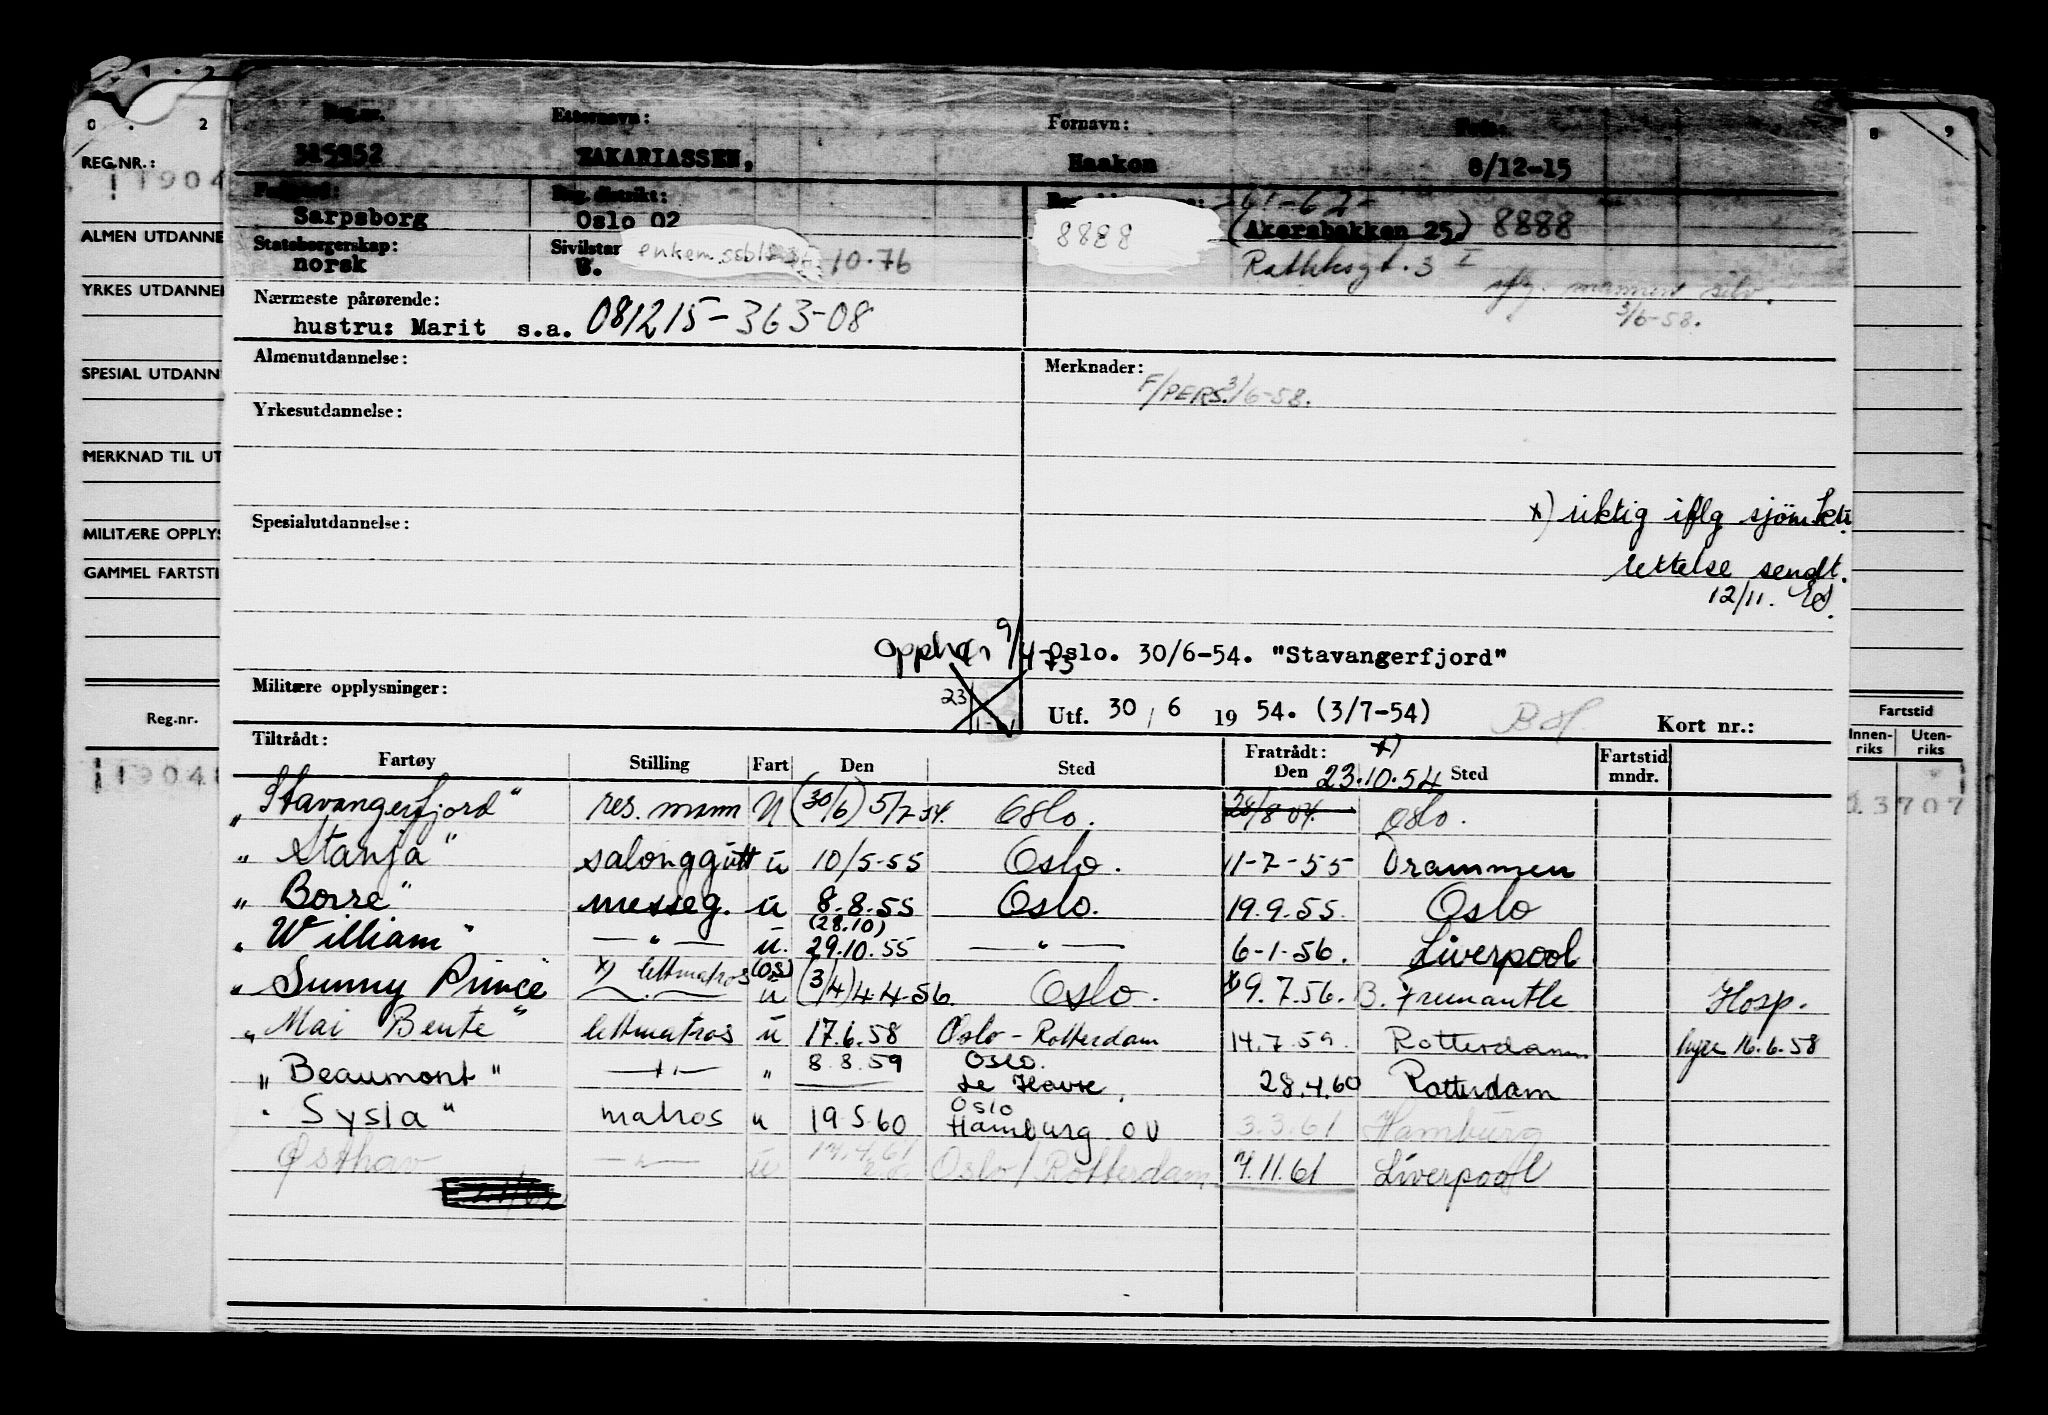 0 . 2
8 9
REG.NR.:
11904
ALMEN UTDANNE
YRKES UTDANNEL
SPESIAL UTDANN
MERKNAD TIL UT
MILITÆRE OPPLYS
GAMMEL FARTSTI
Reg.nr.
11904
Reg.nr. Etternavn: Fornavn:
325952 ZAKARIASSEN, Haakon 8/12-15
Reg. distrikt: 61-62-
Sarpsborg Oslo 02 8888 (Akersbakken 25.) 8888
Statsborgerskap: Sivilstan
norsk 10.76 3 I
Nærmeste pårørende: 3/6-58.
hustru: Marit s.a. 081215-363-08
Almenutdannelse: Merknader:
F/PERS. 3/6-58.
Yrkesutdannelse:
x) riktig iflg sjøm.ktr.
Spesialutdannelse:
rettelse sendt.
12/11.
Opphør 9/4-73 Oslo. 30/6-54. "Stavangerfjord"
Militære opplysninger: 23/1-61
Utf. 30/6 19 54. (3/7-54) Kort nr.:
Fartstid
Innen-riks Uten-riks
13707
Tiltrådt: Fratrådt: x)
Fartøy Stilling Fart Den Sted Den 23.10.54 Sted Fartstid mndr.
"Stavangerfjord" res. mann U (30/6) 5/7-54. Oslo. 28/8-54. Oslo.
"Stanja" salonggutt u 10/5-55 Oslo. 11-7-55 Drammen
"Borre" messeg. u 8.8.55 Oslo. 19.9.55. Oslo
"William" — " — u. (28.10) 29.10.55 — " — 6-1-56. Liverpool
"Sunny Prince" x) lettmatros (OS) u (3/4) 4.4.56. Oslo. x 9.7.56. B. Fremantle Hosp.
"Mai Bente" lettmatros u 17.6.58 Oslo - Rotterdam 14.7.59. Rotterdam hyre 16.6.58
"Beaumont" — " — " 8.8.59 Oslo. Le Havre. 28.4.60 Rotterdam
"Sysla" matros " 19.5.60 Oslo Hamburg OU 3.3.61 Hamburg
Østhav — " — u 14.4.61 Oslo/Rotterdam 7.11.61 Liverpool